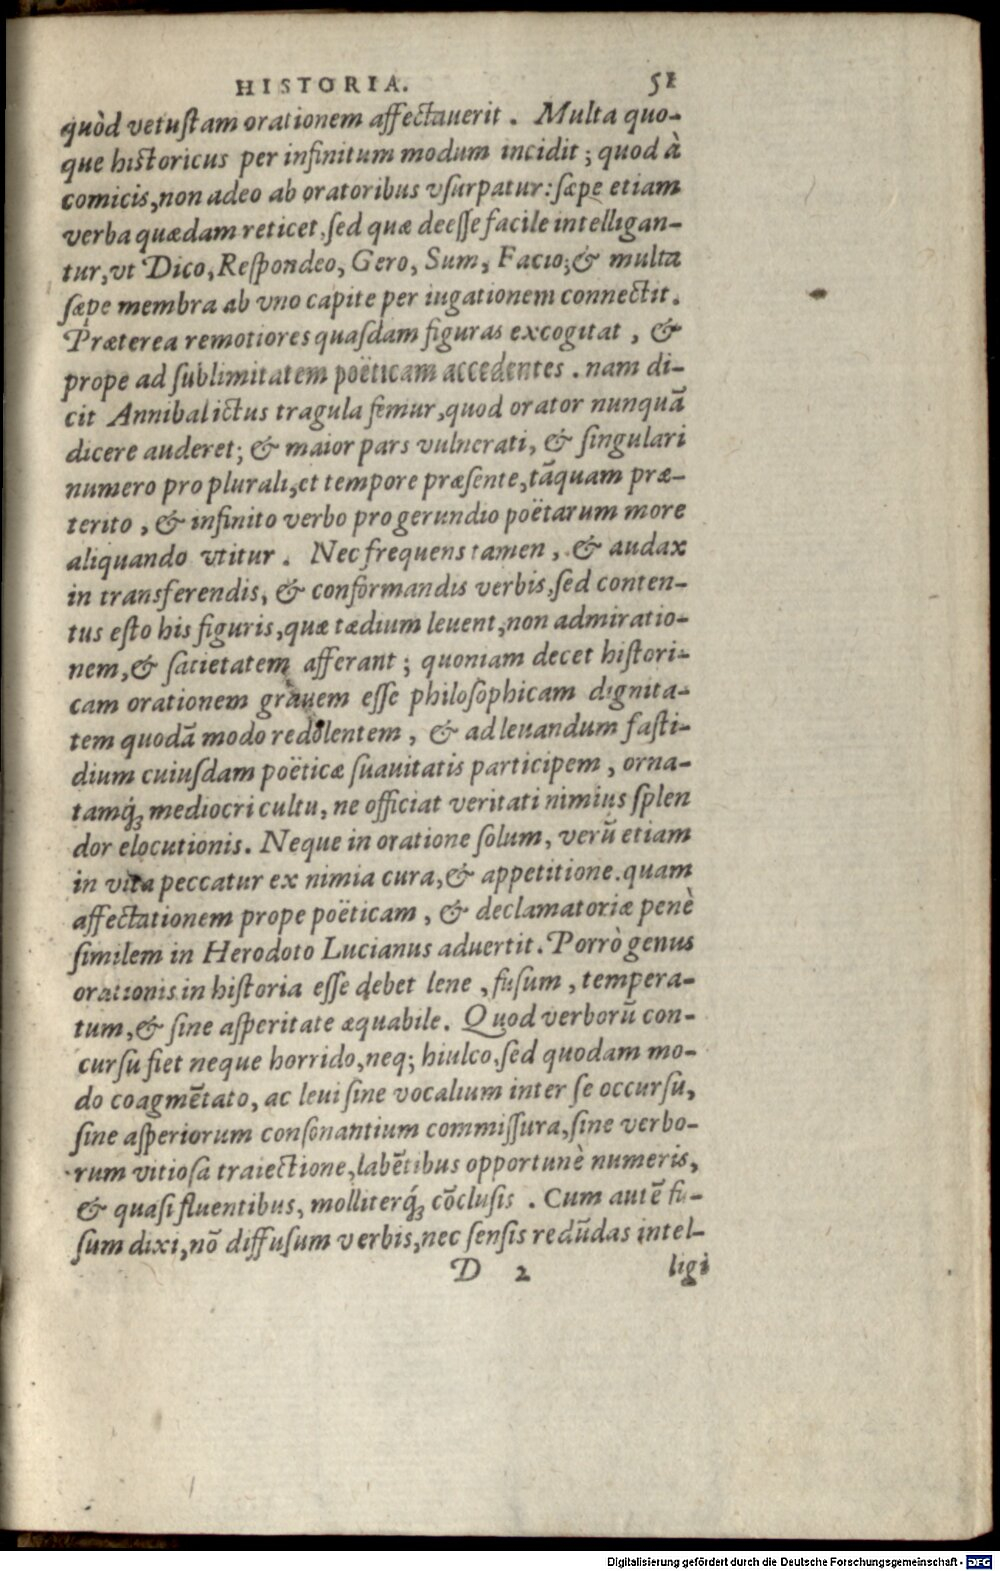 HISTORIA. 51
quòd vetustam orationem affectauerit. Multa quo-
que historicus per infinitum modum incidit; quod à
comicis, non adeo ab oratoribus vsurpatur: sæpe etiam
verba quædam reticet, sed quæ deesse facile intelligan-
tur, vt Dico, Respondeo, Gero, Sum, Facio; & multa
sæpe membra ab vno capite per iugationem connectit.
Præterea remotiores quasdam figuras excogitat, &
prope ad sublimitatem poëticam accedentes. nam di-
cit Annibal ictus tragula femur, quod orator nunquā
dicere auderet; & maior pars vulnerati, & singulari
numero pro plurali, et tempore præsente, tāquam præ-
terito, & infinito verbo pro gerundio poëtarum more
aliquando vtitur. Nec frequens tamen, & audax
in transferendis, & conformandis verbis, sed conten-
tus esto his figuris, quæ tædium leuent, non admiratio-
nem, & satietatem afferant; quoniam decet histori-
cam orationem grauem esse philosophicam dignita-
tem quodā modo redolentem, & ad leuandum fasti-
dium cuiusdam poëticæ suauitatis participem, orna-
tamq́ꝫ mediocri cultu, ne officiat veritati nimius splen
dor elocutionis. Neque in oratione solum, verū etiam
in vita peccatur ex nimia cura, & appetitione. quam
affectationem prope poëticam, & declamatoriæ penè
similem in Herodoto Lucianus aduertit. Porrò genus
orationis in historia esse debet lene, fusum, tempera-
tum, & sine asperitate æquabile. Quod verborū con-
cursu fiet neque horrido, neq; hiulco, sed quodam mo-
do coagmētato, ac leui sine vocalium inter se occursu,
sine asperiorum consonantium commissura, sine verbo-
rum vitiosa traiectione, labētibus opportunè numeris,
& quasi fluentibus, molliterq́ꝫ cōclusis. Cum autē fu-
sum dixi, nō diffusum verbis, nec sensis redūdas intel-
D 2 ligi
Digitalisierung gefördert durch die Deutsche Forschungsgemeinschaft - DFG